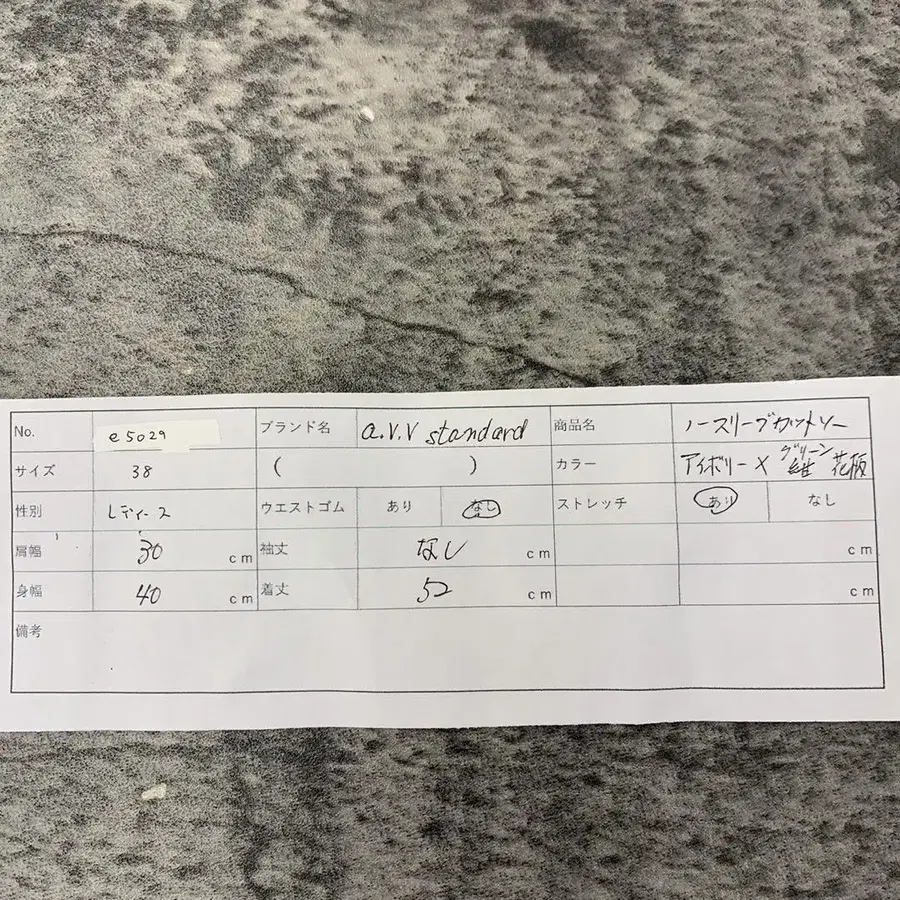 No. e5029 ブランド名 a.v.v standard 商品名 ノースリーブカットソー
サイズ 38 ( ) カラー アイボリー×グリーン 花柄
性別 レディース ウエストゴム あり なし ストレッチ あり なし
肩幅 30 cm 袖丈 なし cm cm
身幅 40 cm 着丈 52 cm cm
備考